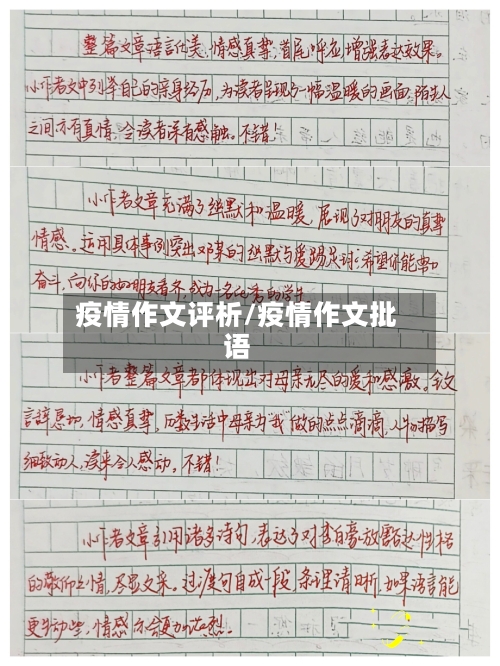 整篇文章语言优美,情感真挚,首尾呼应,增强表达效果。
小作者文中列举自己的亲身经历,为读者呈现了一幅温暖的画面,陌生人
之间亦有真情,令读者深有感触。不错!
小作者文章充满了幽默和温暖,展现了对朋友的真挚
情感。运用具体事例突出邓某的幽默与爱踢足球;希望你能努力
奋斗,向你的朋友看齐,成为一名优秀的学生
疫情作文评析/疫情作文批
语
小作者整篇文章都体现出对母亲无尽的爱和感激。全文
言辞恳切,情感真挚,历数生活中母亲为“我”做的点点滴滴,人物描写
细致动人,读来令人感动。不错!
小作者文章引用诸多诗句,表达了对李白豪放豁达性格
的敬仰之情,尽显文采。过渡句自成一段,条理清晰,如果语言能
更生动些,情感亦会更加浓烈。